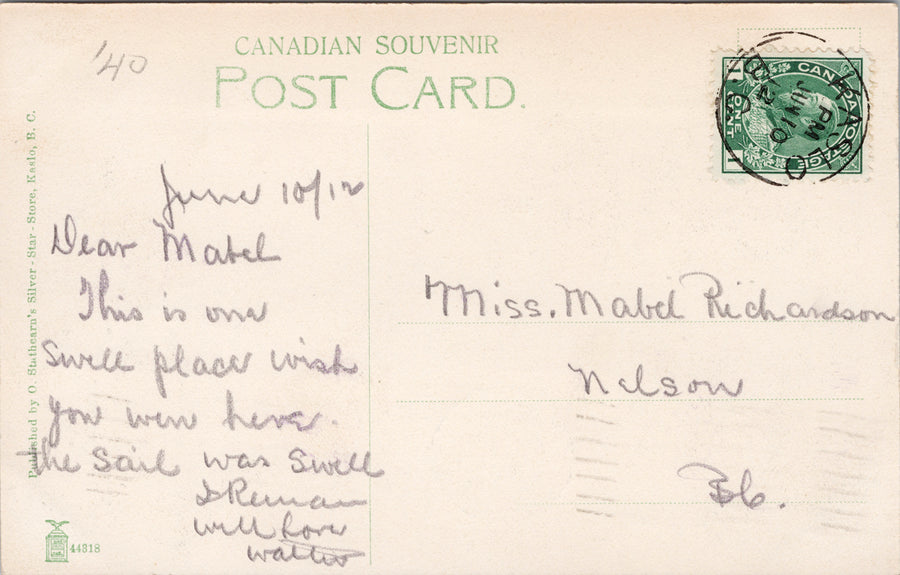 '40
CANADIAN SOUVENIR
POST CARD.
KASLO
B.C.
PM
JUN 10
12
CANADA POSTAGE
ONE CENT
1 1
June 10/12
Dear Mabel
This is one
Swell place wish
you were here.
the Sail was Swell
I Remain
will love
Walter
Miss. Mabel Richardson
Nelson
Bc.
Published by O. Stathearn's Silver-Star-Store, Kaslo, B. C.
44318